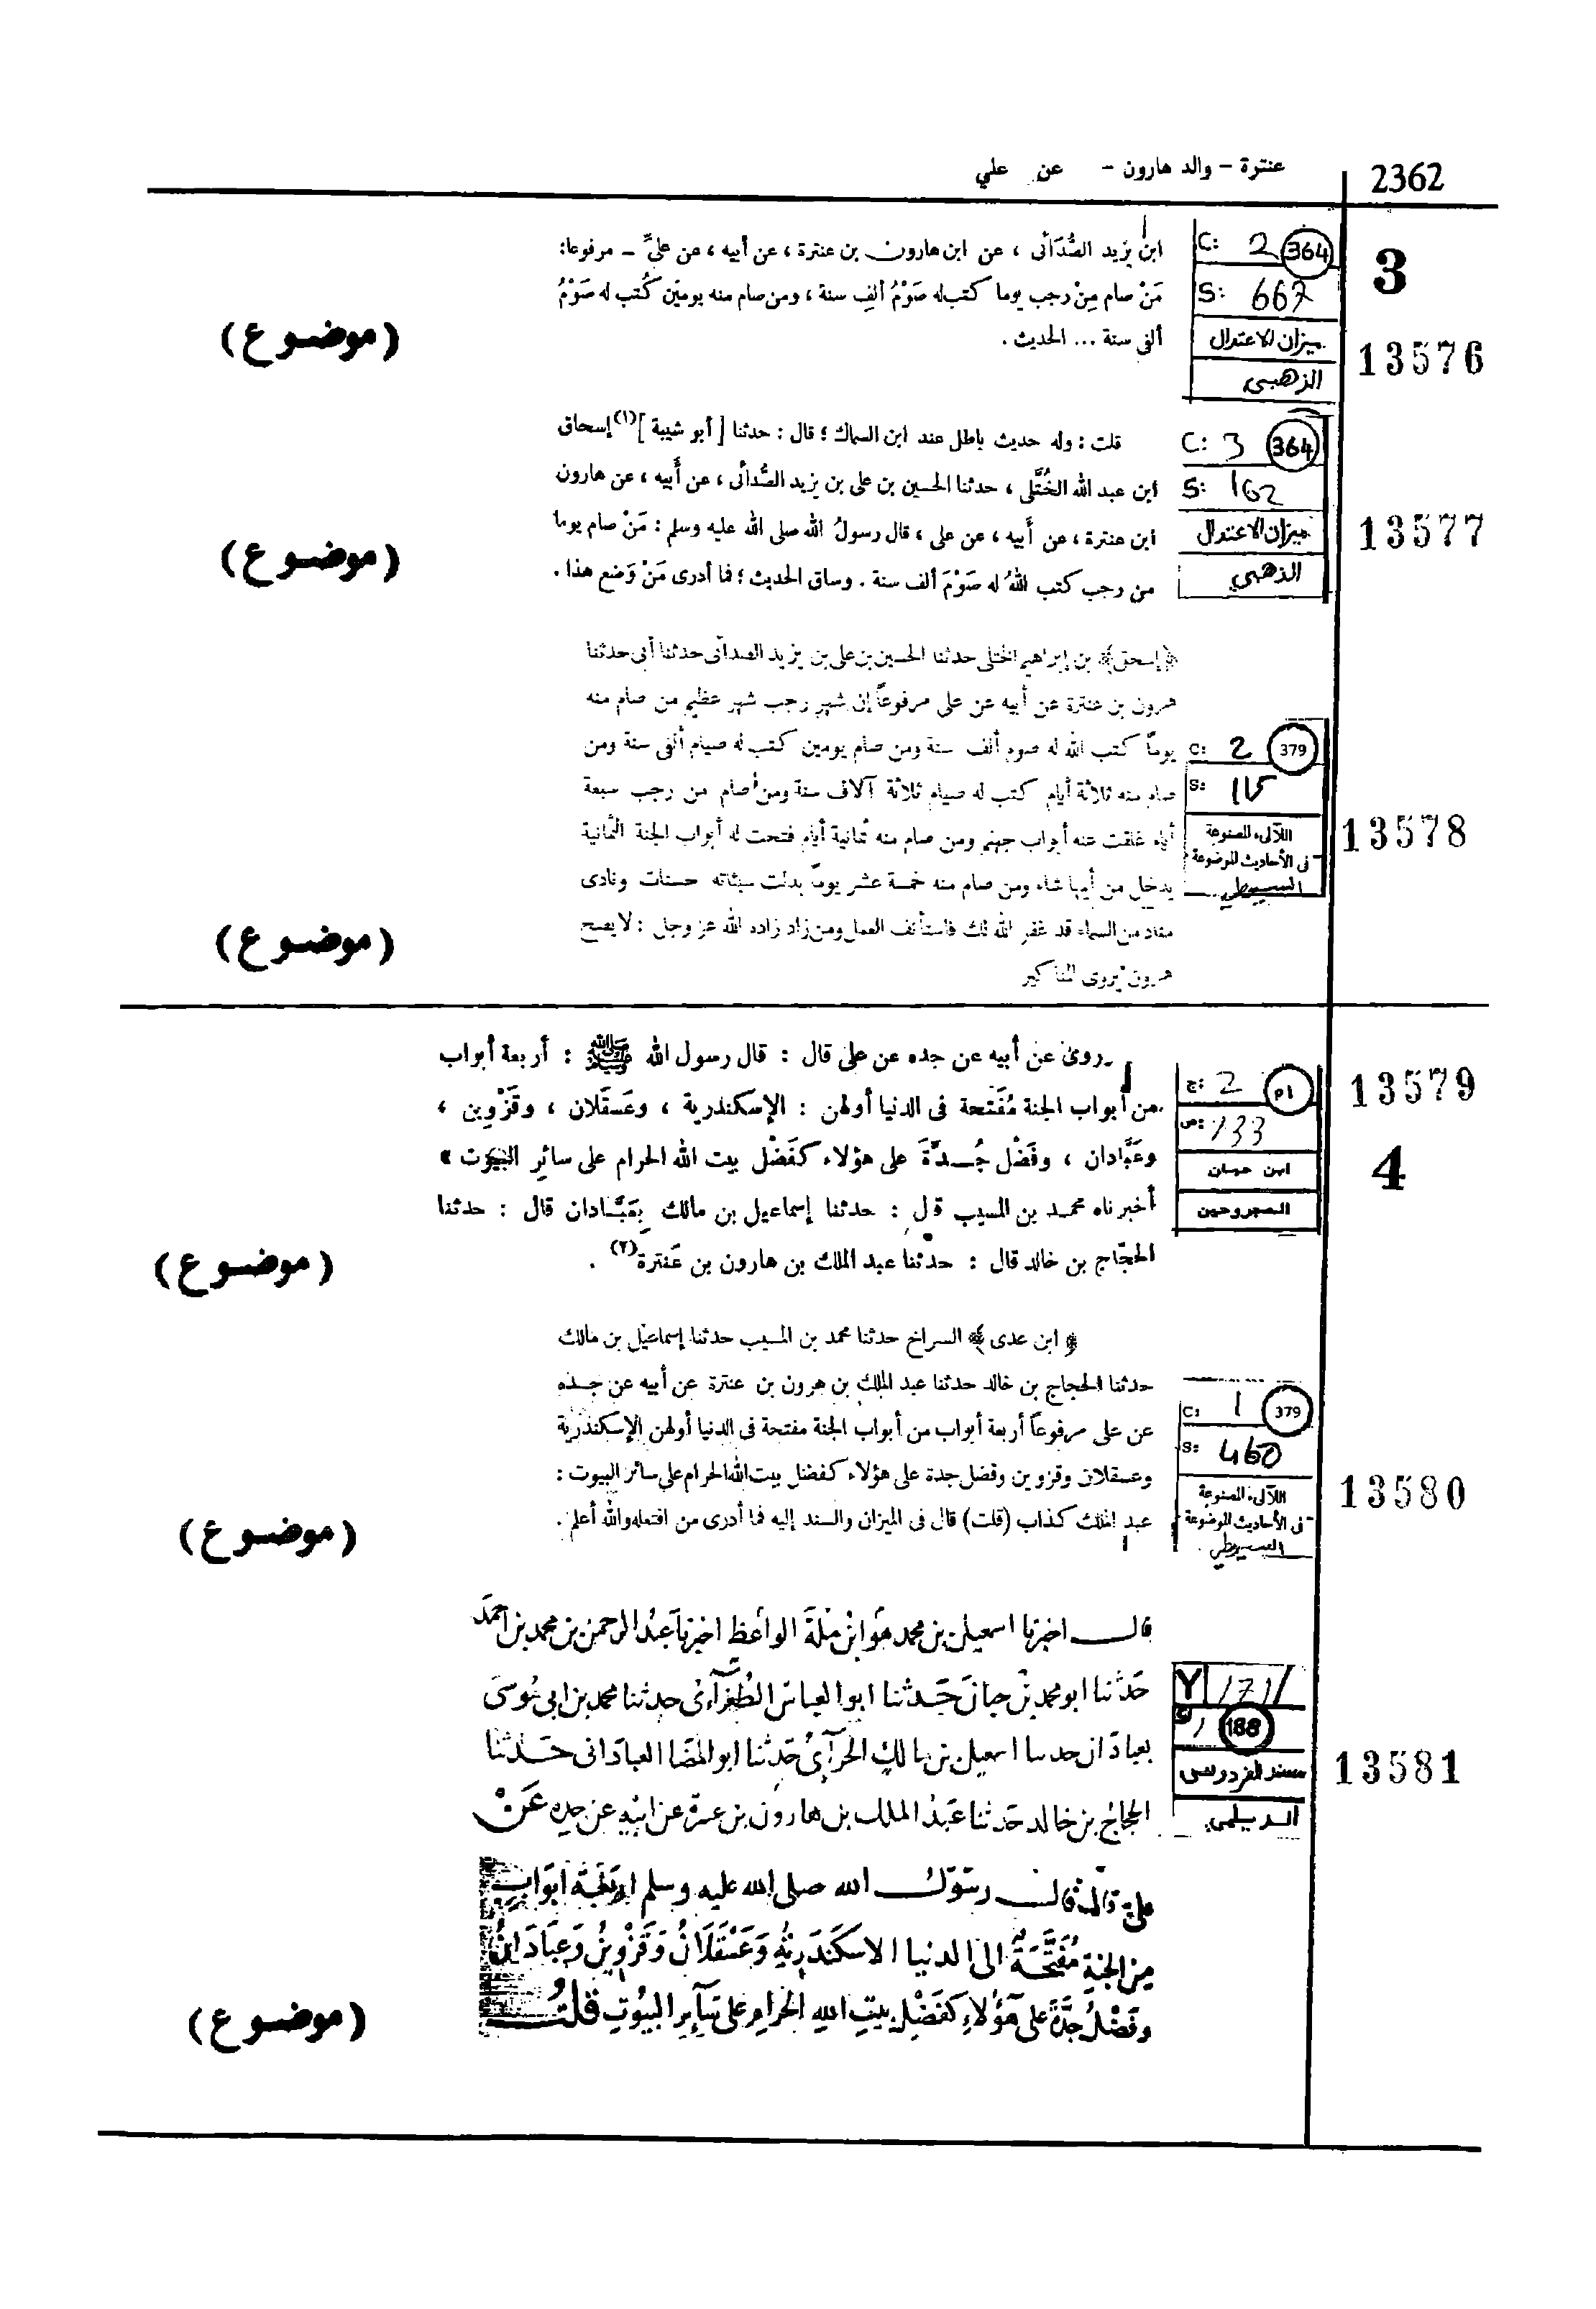 عنترة - والد هارون - عن علي
2362
3
C: 2 364
S: 667
ميزان الاعتدال
الذهبي
13576
ابن يزيد الصُّدَائى ، عن ابن هارون بن عنترة ، عن أبيه ، عن علىّ - مرفوعا:
مَنْ صام مِنْ رجب يوما كتب له صَوْمُ ألفِ سنة ، ومن صام منه يومَيْن كُتب له صَوْمُ
ألفى سنة ... الحديث .
(موضوع)
C: 3 364
S: 162
ميزان الاعتدال
الذهبي
13577
قلت : وله حديث باطل عند ابن السماك ؛ قال : حدثنا [ أبو شيبة ](١) إسحاق
ابن عبد الله الخُتَّلى ، حدثنا الحسين بن على بن يزيد الصُّدائى ، عن أبيه ، عن هارون
ابن عنترة ، عن أبيه ، عن على ، قال رسولُ الله صلى الله عليه وسلم : مَنْ صام يوما
من رجب كتب اللهُ له صَوْمَ ألف سنة . وساق الحديث ؛ فما أدرى مَنْ وَضع هذا .
(موضوع)
C: 2 379
S: 115
اللآلىء المصنوعة
فى الأحاديث الموضوعة
السيوطي
13578
﴿إسحق﴾ بن إبراهيم الختلى حدثنا الحسين بن على بن يزيد الصدائى حدثنا أبى حدثنا
هرون بن عنترة عن أبيه عن على مرفوعاً إن شهر رجب شهر عظيم من صام منه
يوماً كتب الله له صوم ألف سنة ومن صام يومين كتب له صيام ألفى سنة ومن
صام منه ثلاثة أيام كتب له صيام ثلاثة آلاف سنة ومن صام من رجب سبعة
أيام غلقت عنه أبواب جهنم ومن صام منه ثمانية أيام فتحت له أبواب الجنة الثمانية
يدخل من أيها شاء ومن صام منه خمسة عشر يوماً بدلت سيئاته حسنات ونادى
مناد من السماء قد غفر الله لك فاستأنف العمل ومن زاد زاده الله عز وجل : لا يصح
هرون يروى المناكير
(موضوع)
13579
4
ج: 2 م1
ص: 133
ابن حبان
المجروحين
روى عن أبيه عن جده عن على قال : قال رسول الله ﷺ : أربعة أبواب
من أبواب الجنة مُفَتحة فى الدنيا أولهن : الإسكندرية ، وعَسقَلان ، وقَزْوين ،
وعَبَّادان ، وفَضْل جُدَّةَ على هؤلاء كفَضْل بيت الله الحرام على سائر البيوت »
أخبرناه محمد بن المسيب قال : حدثنا إسماعيل بن مالك بِعَبَّادان قال : حدثنا
الحجّاج بن خالد قال : حدثنا عبد الملك بن هارون بن عَنترة(٢) .
(موضوع)
C: 1 379
S: 460
اللآلىء المصنوعة
فى الأحاديث الموضوعة
السيوطي
13580
﴿ ابن عدى ﴾ السراخ حدثنا محمد بن المسيب حدثنا إسماعيل بن مالك
حدثنا الحجاج بن خالد حدثنا عبد الملك بن هرون بن عنترة عن أبيه عن جده
عن على مرفوعاً أربعة أبواب من أبواب الجنة مفتحة فى الدنيا أولهن الإسكندرية
وعسقلان وقزوين وفضل جدة على هؤلاء كفضل بيت الله الحرام على سائر البيوت :
عبد الملك كذاب (قلت) قال فى الميزان والسند إليه فما أدرى من افتعله والله أعلم .
(موضوع)
Y 171/
1 188
مسند الفردوسى
الديلمي
13581
قال اخبرنا اسمعيل بن محمد هو ابن ملة الواعظ اخبرنا عبد الرحمن بن محمد بن احمد
حدثنا ابو محمد بن حيان حدثنا ابو العباس الظفرآءى حدثنا محمد بن ابى موسى
بعبادان حدثنا اسمعيل بن مالك الحرآى حدثنا ابو المضا العبادانى حدثنا
الحجاج بن خالد حدثنا عبد الملك بن هارون بن عنترة عن ابيه عن جده عن
على قال قال رسول الله صلى الله عليه وسلم اربعة ابواب
من الجنة مُفَتَّحَةٌ الى الدنيا الاسكندرية وعسقلان وقزوين وعبادان
وفضل جدة على هؤلاء كفضل بيت الله الحرام على سآئر البيوت قلت
(موضوع)